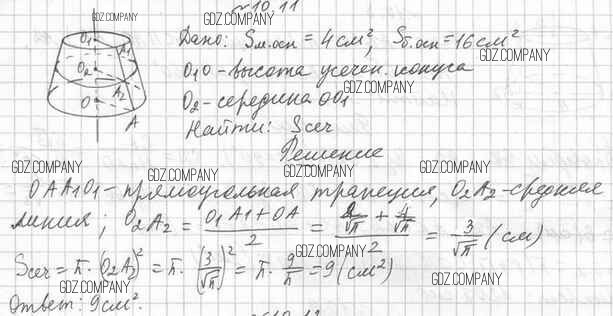 №10.11
GDZ.COMPANY
GDZ.COMPANY
Дано: Sм.осн = 4см², Sб.осн = 16см²
GDZ.COMPANY
O₁O - высота усечен. конуса
GDZ.COMPANY
O₂ - середина OO₁
Найти: Sсеч
Решение
GDZ.COMPANY
GDZ.COMPANY
GDZ.COMPANY
OAA₁O₁ - прямоугольная трапеция, O₂A₂ - средняя
линия; O₂A₂ = (O₁A₁ + OA)/2 = (2/√π + 4/√π)/2 = 3/√π (см)
GDZ.COMPANY
GDZ.COMPANY
GDZ.COMPANY
Sсеч = π·(O₂A₂)² = π·(3/√π)² = π·9/π = 9(см²)
GDZ.COMPANY
GDZ.COMPANY
Ответ: 9см².
O₁
A₁
O₂
A₂
O
A